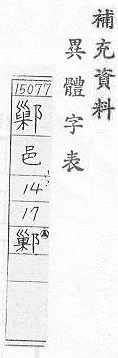 補充資料
異體字表
15077
鄛
邑
14
17
鄛